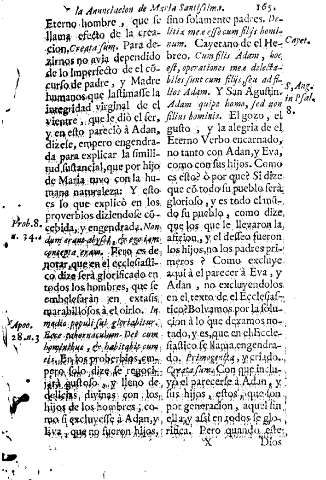 la Anunciacion de Maria Santissima. 165.
Eterno hombre, que se
llama efecto de la crea-
cion, Creata sum. Para de-
zirnos no avia dependido
de lo Imperfecto de el cõ-
curso de padre, y Madre
humanos que lastimasse la
integridad virginal de el
vientre, que le diò el ser,
y en esto pareciò à Adan,
dizese, empero engendra-
da para explicar la simili-
tud sustancial, que por hijo
de Maria tuvo con la hu-
mana naturaleza: Y esto
es lo que explicò en los
proverbios diziendose cõ-
cebida, y engendrada. Non-
dum erant abyssi, & ego iam
concepta eram. Pero es de
notar, que en el ecclesiasti-
co dize serà glorificado en
todos los hombres, que se
embelesaràn en extasis
marabillosos à el oirlo. In
medio populi sui gloriabitur.
Ecce tabernaculum Dei cum
hominibus, & habitabit cum
eis. En los proberbios, em-
pero, solo dize se regoci-
jarà gustoso, y lleno de
delicias divinas con los
hijos de los hombres, co-
mo si excluyesse à Adan, y
Eva, que no fueron hijos,
Prob. 8.
Apoc.
sino solamente padres. De-
litiæ meæ esse cum filijs homi-
num. Cayetano de el He-
breo. Cum filijs Adam, hoc
est, operationes meæ delecta-
biles sunt cum filijs, seu ad fi-
lios Adam. Y San Agustin.
Adam quipe homo, sed non
filius hominis. El gozo, el
gusto, y la alegria de el
Eterno Verbo encarnado,
no tanto con Adan, y Eva,
como con sus hijos. Como
es esto? ò por què? Si dize
que cõ todo su pueblo serà
glorioso, y es todo el mũ-
do su pueblo, como dize,
que los que le llevaron la
aficion, y el desseo fueron
los hijos, no los padres pri-
meros? Como excluye
aqui à el parecer à Eva, y
Adan, no excluyendolos
en el texto de el Eclesias-
tico? Bolvamos por la solu-
cion à lo que dexamos no-
tado, y es, que en el Eccle-
siastico se llama engendra-
do. Primogenita, y criado.
Creata sum. Con que inclu-
yò el parecerse à Adan, y
sus hijos, estos, que son
por generacion, aquel sin
ella, y assi en todos se glo-
rifica. Pero quando este,
Cayet.
S. Aug.
in Psal.
8.
X Dios